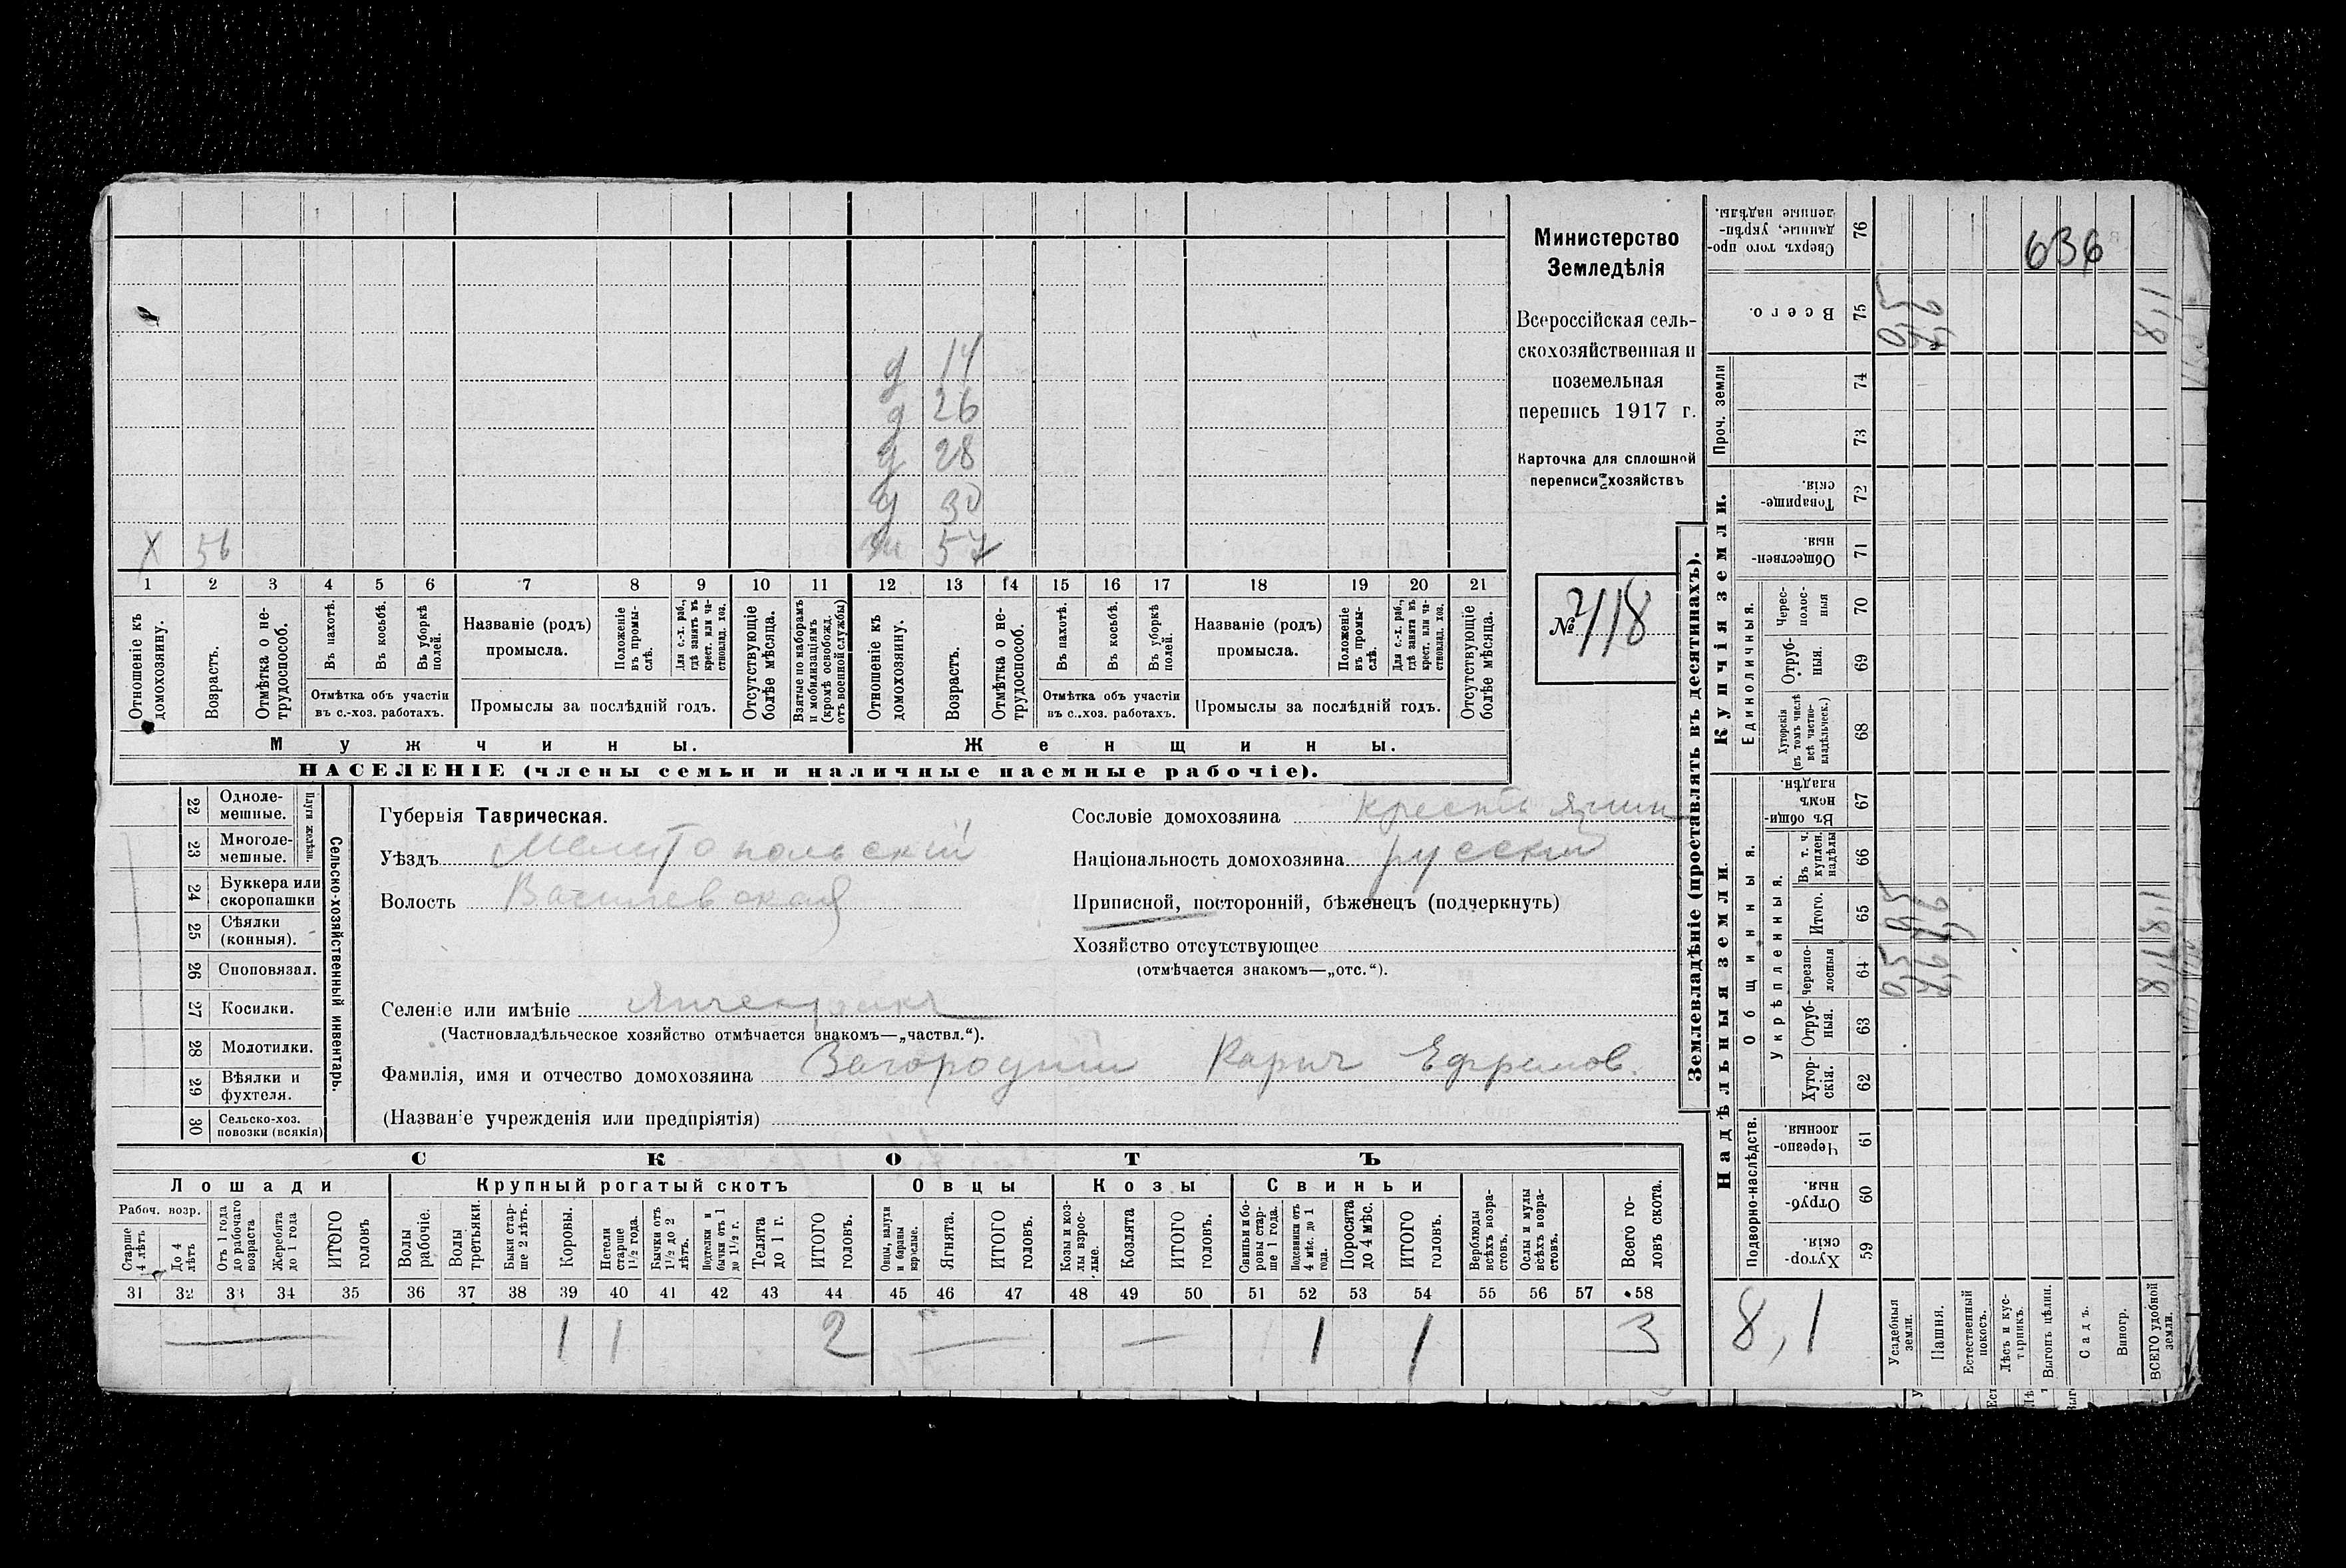 Министерство
Земледѣлія
Всероссійская сель-
скохозяйственная и
поземельная
перепись 1917 г.
Карточка для сплошной
переписи хозяйствъ
№ 418
636
д 14
д 26
д 28
д 30
X 56
ж 57
1 2 3 4 5 6 7 8 9 10 11 12 13 14 15 16 17 18 19 20 21
Отношеніе къ домохозяину.
Возрастъ.
Отмѣтка о не-
трудоспособ.
Въ пахотѣ.
Въ косьбѣ.
Въ уборкѣ
полей.
Отмѣтка объ участіи
въ с.-хоз. работахъ.
Названіе (родъ)
промысла.
Положеніе
въ промы-
слѣ.
Для с.-х. раб.,
гдѣ занятъ въ
крест. или ча-
стновлад. хоз.
Промыслы за послѣдній годъ.
Отсутствующіе
болѣе мѣсяца.
Взятые по наборамъ
и мобилизаціямъ
(кромѣ освобожд.
отъ военной службы)
Отношеніе къ
домохозяину.
Возрастъ.
Отмѣтка о не-
трудоспособ.
Въ пахотѣ.
Въ косьбѣ.
Въ уборкѣ
полей.
Отмѣтка объ участіи
въ с.-хоз. работахъ.
Названіе (родъ)
промысла.
Положеніе
въ промы-
слѣ.
Для с.-х. раб.,
гдѣ занята въ
крест. или ча-
стновлад. хоз.
Промыслы за послѣдній годъ.
Отсутствующіе
болѣе мѣсяца.
Мужчины.
Женщины.
НАСЕЛЕНІЕ (члены семьи и наличные наемные рабочіе).
22 Одноле-
мешные.
23 Многоле-
мешные.
Плуги желѣзн.
24 Буккера или
скоропашки
25 Сѣялки
(конныя).
26 Сноповязал.
27 Косилки.
28 Молотилки.
29 Вѣялки и
фухтеля.
30 Сельско-хоз.
повозки (всякія)
Сельско-хозяйственный инвентарь.
Губернія Таврическая.
Уѣздъ Мелитопольскій
Волость Василевская
Сословіе домохозяина Крестьянин
Національность домохозяина русскій
Приписной, посторонній, бѣженецъ (подчеркнуть)
Хозяйство отсутствующее
(отмѣчается знакомъ—„отс.“).
Селеніе или имѣніе Янчекракъ
(Частновладѣльческое хозяйство отмѣчается знакомъ—„частвл.“).
Фамилія, имя и отчество домохозяина Загородній Карпъ Ефремов.
(Названіе учрежденія или предпріятія)
СКОТЪ
Лошади
Крупный рогатый скотъ
Овцы
Козы
Свиньи
Рабоч. возр.
Старше
4 лѣтъ
До 4
лѣтъ
Отъ 1 года
до рабочаго
возраста
Жеребята
до 1 года
ИТОГО
головъ
Волы
рабочіе.
Волы
третьяки.
Быки стар-
ше 2 лѣтъ.
Коровы.
Нетели
старше
1½ года.
Бычки отъ
1½ до 2
лѣтъ.
Подтелки и
бычки отъ 1
до 1½ г.
Телята
до 1 г.
ИТОГО
головъ.
Овцы, валухи
и бараны
взрослые.
Ягнята.
ИТОГО
головъ.
Козы и коз-
лы взрос-
лые.
Козлята
ИТОГО
головъ.
Свиньи и бо-
ровы стар-
ше 1 года.
Подсвинки отъ
4 мѣс. до 1
года.
Поросята
до 4 мѣс.
ИТОГО
головъ.
Верблюды
всѣхъ возра-
стовъ.
Ослы и мулы
всѣхъ возра-
стовъ.
Всего го-
ловъ скота.
31 32 33 34 35 36 37 38 39 40 41 42 43 44 45 46 47 48 49 50 51 52 53 54 55 56 57 58
1 1 2 1 1 3
Землевладѣніе (проставлять въ десятинахъ).
Купчія земли.
Надѣльныя земли.
Сверхъ того про-
данные, укрѣп-
ленные надѣлы.
76
Всего.
75
Проч. земли
74
73
Товарище-
скія.
72
Обществен-
ныя.
71
Единоличныя.
Черес-
полос-
ныя
70
Отруб-
ныя.
69
Хуторскія
(въ томъ числѣ
всѣ частно-
владѣльческ.)
68
Общинныя.
Въ общи-
номъ
владѣн.
67
Укрѣпленныя.
Въ т. ч.
куплен.
надѣлы
66
Итого.
65
Черезпо-
лосныя
64
Отруб-
ныя.
63
Хутор-
скія.
62
Подворно-наслѣдств.
Черезпо-
лосныя
61
Отруб-
ныя.
60
Хутор-
скія.
59
8,1
Усадебныя
земли.
Пашня.
Естественный
покосъ.
Лѣсъ и кус-
тарникъ.
Выгонъ цѣлин.
Садъ.
Виногр.
ВСЕГО удобной
земли.